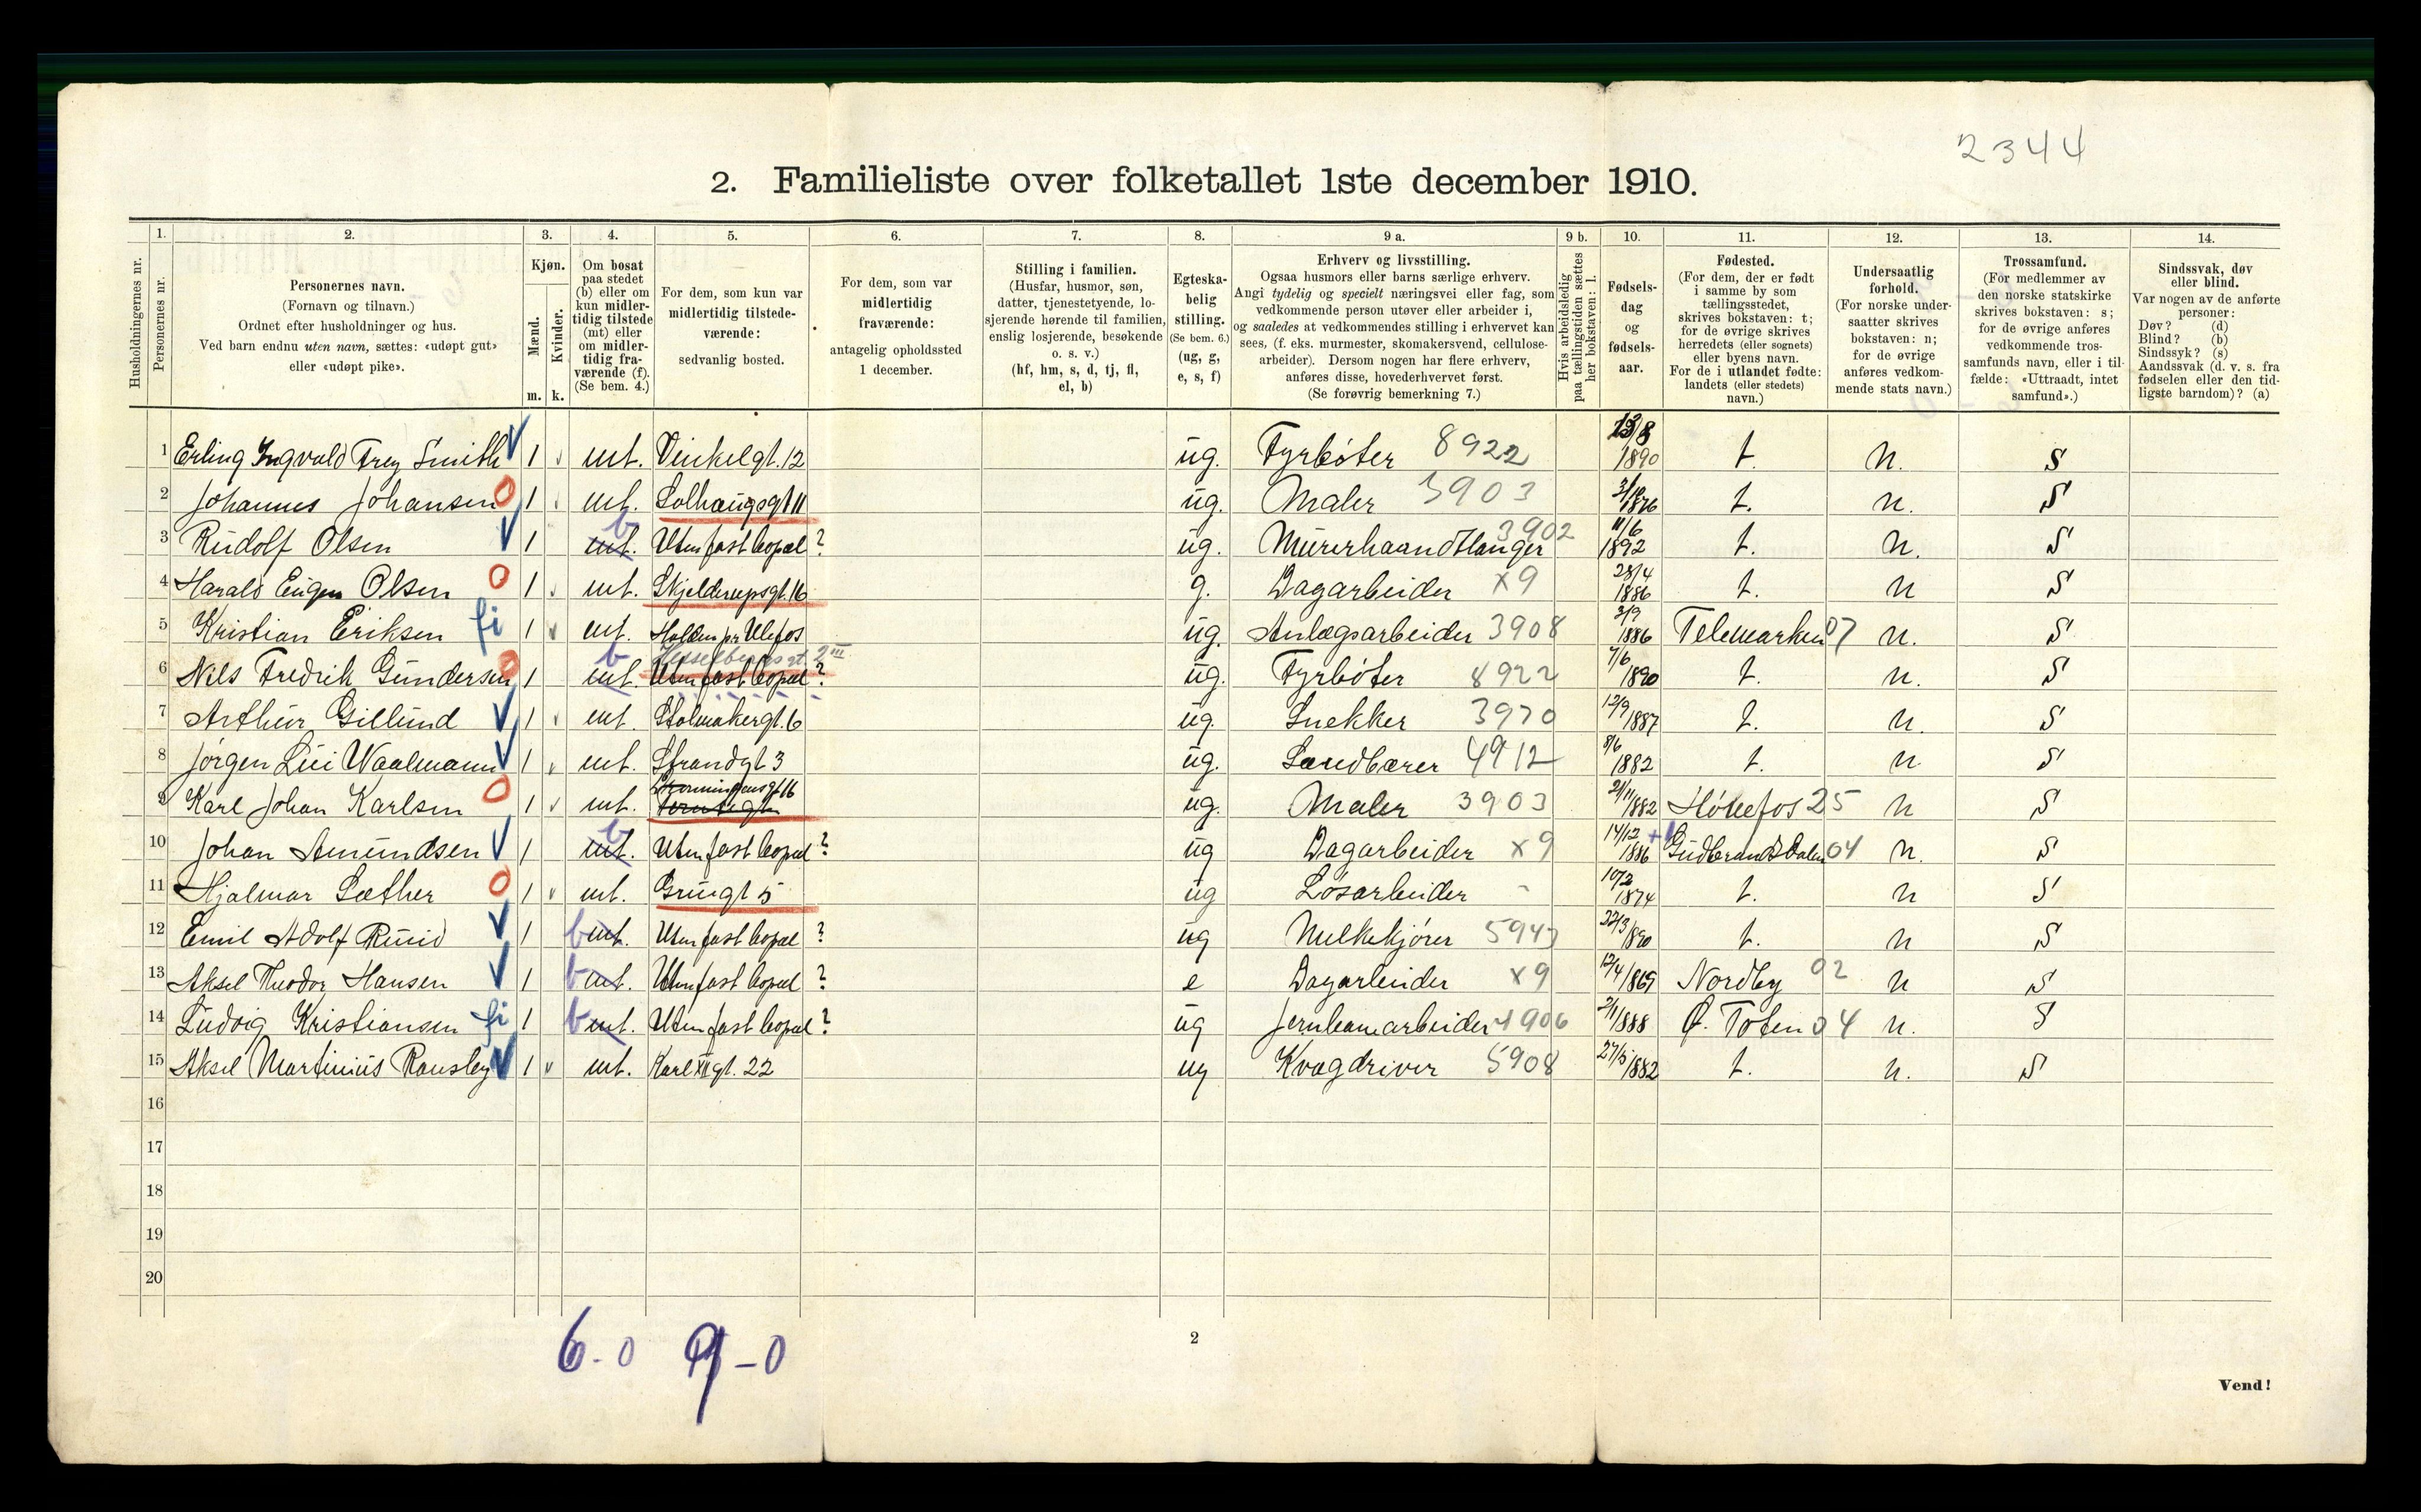 2344
2. Familieliste over folketallet 1ste december 1910.
1. 2. 3. 4. 5. 6. 7. 8. 9 a. 9 b. 10. 11. 12. 13. 14.
Husholdningernes nr.
Personernes nr.
Personernes navn.
(Fornavn og tilnavn.)
Ordnet efter husholdninger og hus.
Ved barn endnu uten navn, sættes: «udøpt gut»
eller «udøpt pike».
Kjøn.
Mænd.
Kvinder.
m. k.
Om bosat
paa stedet
(b) eller om
kun midler-
tidig tilstede
(mt) eller
om midler-
tidig fra-
værende (f).
(Se bem. 4.)
For dem, som kun var
midlertidig tilstede-
værende:
sedvanlig bosted.
For dem, som var
midlertidig
fraværende:
antagelig opholdssted
1 december.
Stilling i familien.
(Husfar, husmor, søn,
datter, tjenestetyende, lo-
sjerende hørende til familien,
enslig losjerende, besøkende
o. s. v.)
(hf, hm, s, d, tj, fl,
el, b)
Egteska-
belig
stilling.
(Se bem. 6.)
(ug, g,
e, s, f)
Erhverv og livsstilling.
Ogsaa husmors eller barns særlige erhverv.
Angi tydelig og specielt næringsvei eller fag, som
vedkommende person utøver eller arbeider i,
og saaledes at vedkommendes stilling i erhvervet kan
sees, (f. eks. murmester, skomakersvend, cellulose-
arbeider). Dersom nogen har flere erhverv,
anføres disse, hovederhvervet først.
(Se forøvrig bemerkning 7.)
Hvis arbeidsledig
paa tællingstiden sættes
her bokstaven: l.
Fødsels-
dag
og
fødsels-
aar.
Fødested.
(For dem, der er født
i samme by som
tællingsstedet,
skrives bokstaven: t;
for de øvrige skrives
herredets (eller sognets)
eller byens navn.
For de i utlandet fødte:
landets (eller stedets)
navn.)
Undersaatlig
forhold.
(For norske under-
saatter skrives
bokstaven: n;
for de øvrige
anføres vedkom-
mende stats navn.)
Trossamfund.
(For medlemmer av
den norske statskirke
skrives bokstaven: s;
for de øvrige anføres
vedkommende tros-
samfunds navn, eller i til-
fælde: «Uttraadt, intet
samfund».)
Sindssvak, døv
eller blind.
Var nogen av de anførte
personer:
Døv? (d)
Blind? (b)
Sindssyk? (s)
Aandssvak (d. v. s. fra
fødselen eller den tid-
ligste barndom)? (a)
1 Erling Ingvald Frey Smith 1 mt. Vinkelgt. 12 ug. Fyrbøter 8922 1890 t. n. s
2 Johannes Johansen 1 mt. Solhaugsgt 11 ug. Maler 3903 1876 t. n. s
3 Rudolf Olsen 1 mt. b Uten fast bopæl ? ug. Murerhaandtlanger 3902 11/6 1892 t. n. s
4 Harald Eugen Olsen 1 mt. Skjelderupsgt. 16 g. Dagarbeider x9 28/4 1886 t. n s
5 Kristian Eriksen fi 1 mt. Holden pr. Ulefos ug. Anlægsarbeider 3908 3/9 1886 Telemarken 07 n. s
6 Nils Fredrik Gundersen 1 mt. b Hesselbergsgt. 2 III Uten fast bopæl ? ug. Fyrbøter 8922 7/6 1890 t. n. s
7 Arthur Gillund 1 mt. Stolmakergt. 6 ug. Snekker 3970 12/9 1887 t. n. s
8 Jørgen Waalmann 1 mt. Strandgt 3 ug. Sandbærer 4912 8/6 1882 t. n s
9 Karl Johan Karlsen 1 mt. ug. Maler 3903 21/11 1882 Hønefos 25 n s
10 Johan Amundsen 1 mt. b Uten fast bopæl ? ug Dagarbeider x9 14/12 1886 Gudbrandsdalen 04 n. s
11 Hjalmar Sæther 1 mt. Grüngt 5 ug Løsarbeider - 10/2 1874 t. n s
12 Emil Adolf Ruud 1 b mt. Uten fast bopæl ? ug Melkekjører 5943 22/3 1890 t. n s
13 Aksel Theodor Hansen 1 b mt. Uten fast bopæl ? e Dagarbeider x9 12/4 1869 Nordby 02 n s
14 Ludvig Kristiansen fi 1 b mt. Uten fast bopæl ? ug Jernbanearbeider 4906 2/1 1888 Ø. Toten 04 n. s
15 Aksel Martinius 1 mt. Karl XII gt. 22 ug Kvægdriver 5908 27/5 1882 t. n. s
16
17
18
19
20
6-0 9-0
2
Vend!